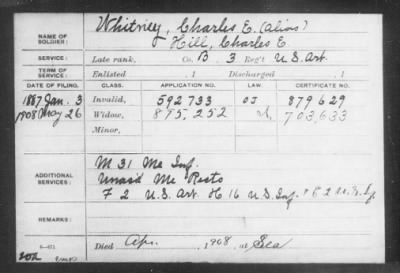 NAME OF SOLDIER: Whitney, Charles E. (alias)
Hill, Charles E
SERVICE: Late rank, Co. B. 3 Reg't U.S. Art.
TERM OF SERVICE: Enlisted , 1 Discharged , 1
DATE OF FILING. CLASS. APPLICATION NO. LAW. CERTIFICATE NO.
1887 Jan. 3 Invalid, 592733 879629
1908 May 26 Widow, 895,252 703,633
Minor,
ADDITIONAL SERVICES: M 31 Me Inf.
Unasd Me Rects
F 2 U.S. Art H 16 U.S. Inf.
REMARKS:
Died Apr. 1908, at Sea